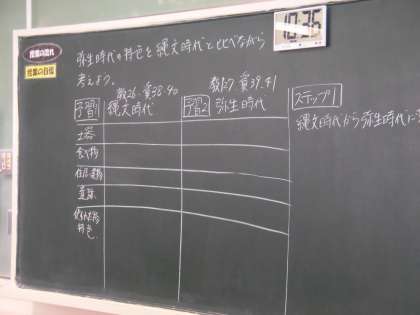 授業の流れ
授業の目標
弥生時代の特色を縄文時代と比べながら
考えよう。
10:35
教26 資38.40
教27 資39.41
予習1 縄文時代
予習2 弥生時代
ステップ1
縄文時代から弥生時代に
土器
食べ物
住居
道具
特色